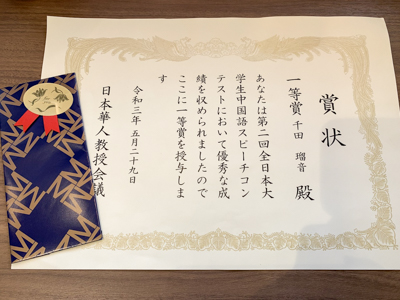 賞状
一等賞 千田 瑠音 殿
あなたは第二回全日本大
学生中国語スピーチコン
テストにおいて優秀な成
績を収められましたので
ここに一等賞を授与しま
す
令和三年 五月二十九日
日本華人教授会議